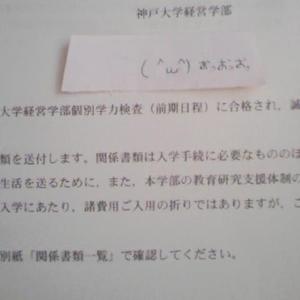 神戸大学経営学部
( ^ω^) おっおっお。
大学経営学部個別学力検査（前期日程）に合格され、誠
類を送付します。関係書類は入学手続に必要なもののほ
生活を送るために、また、本学部の教育研究支援体制の
入学にあたり、諸費用ご入用の折りではありますが、こ
別紙「関係書類一覧」で確認してください。